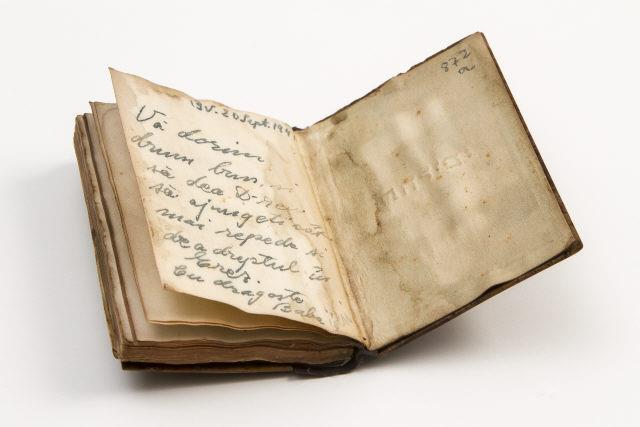 20 Sept. 194
Vă dorim
drum bun, și
să dea D-zeu
să ajungeți cât
mai repede și
de a dreptul în
Erez.
Cu dragoste
Baba
872
a